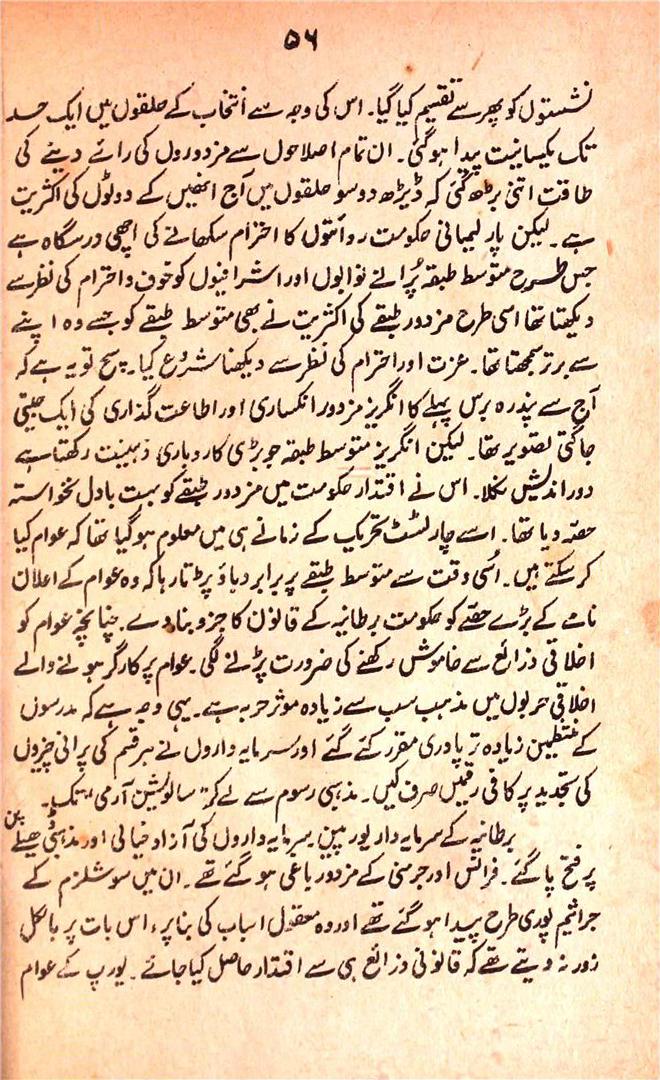 ۵۶
نشستوں کو پھر سے تقسیم کیا گیا۔ اس کی وجہ سے انتخاب کے حلقوں میں ایک حد
تک یکسانیت پیدا ہوگئی۔ ان تمام اصلاحوں سے مزدوروں کی رائے دینے کی
طاقت اتنی بڑھ گئی کہ ڈیڑھ دوسو حلقوں میں آج انھیں کے ووٹوں کی اکثریت
ہے۔ لیکن پارلیمانی حکومت روائتوں کا احترام سکھانے کی اچھی درسگاہ ہے
جس طرح متوسط طبقہ پُرانے نوابوں اور اشرافیوں کو خوف و احترام کی نظر سے
دیکھتا تھا اسی طرح مزدور طبقے کی اکثریت نے بھی متوسط طبقے کو جسے وہ اپنے
سے برتر سمجھتا تھا۔ عزت اور احترام کی نظر سے دیکھنا شروع کیا۔ سچ تو یہ ہے کہ
آج سے پندرہ برس پہلے کا انگریز مزدور انکساری اور اطاعت گذاری کی ایک جیتی
جاگتی تصویر تھا۔ لیکن انگریز متوسط طبقہ جو بڑی کاروباری ذہینت رکھتا ہے
دور اندیش نکلا۔ اس نے اقتدار حکومت میں مزدور طبقے کو بہت بادل نخواستہ
حصہ دیا تھا۔ اسے چارلسٹ تحریک کے زمانے ہی میں معلوم ہوگیا تھا کہ عوام کیا
کرسکتے ہیں۔ اُسی وقت سے متوسط طبقے پر برابر دباؤ پڑتا رہا کہ وہ عوام کے اعلان
نامے کے بڑے حصے کو حکومت برطانیہ کے قانون کا جزو بنا دے۔ چنانچہ عوام کو
اخلاقی ذرائع سے خاموش رکھنے کی ضرورت پڑنے لگی۔ عوام پر کارگر ہونے والے
اخلاقی حربوں میں مذہب سب سے زیادہ موثر حربہ ہے۔ یہی وجہ ہے کہ مدرسوں
کے منتظمین زیادہ تر پادری مقرر کئے گئے اور سرمایہ داروں نے ہر قسم کی پرانی چیزوں
کی تجدید پر کافی رقمیں صرف کیں۔ مذہبی رسوم سے لے کر "سالویشن آرمی" تک۔
برطانیہ کے سرمایہ دار یورپین سرمایہ داروں کی آزاد خیالی اور مذہبی ڈھیلے پن
پر فتح پا گئے۔ فرانس اور جرمنی کے مزدور باغی ہوگئے تھے۔ ان میں سوشلزم کے
جراثیم پوری طرح پیدا ہوگئے تھے اور وہ معقول اسباب کی بنا پر، اس بات پر بالکل
زور نہ دیتے تھے کہ قانونی ذرائع ہی سے اقتدار حاصل کیا جائے۔ یورپ کے عوام